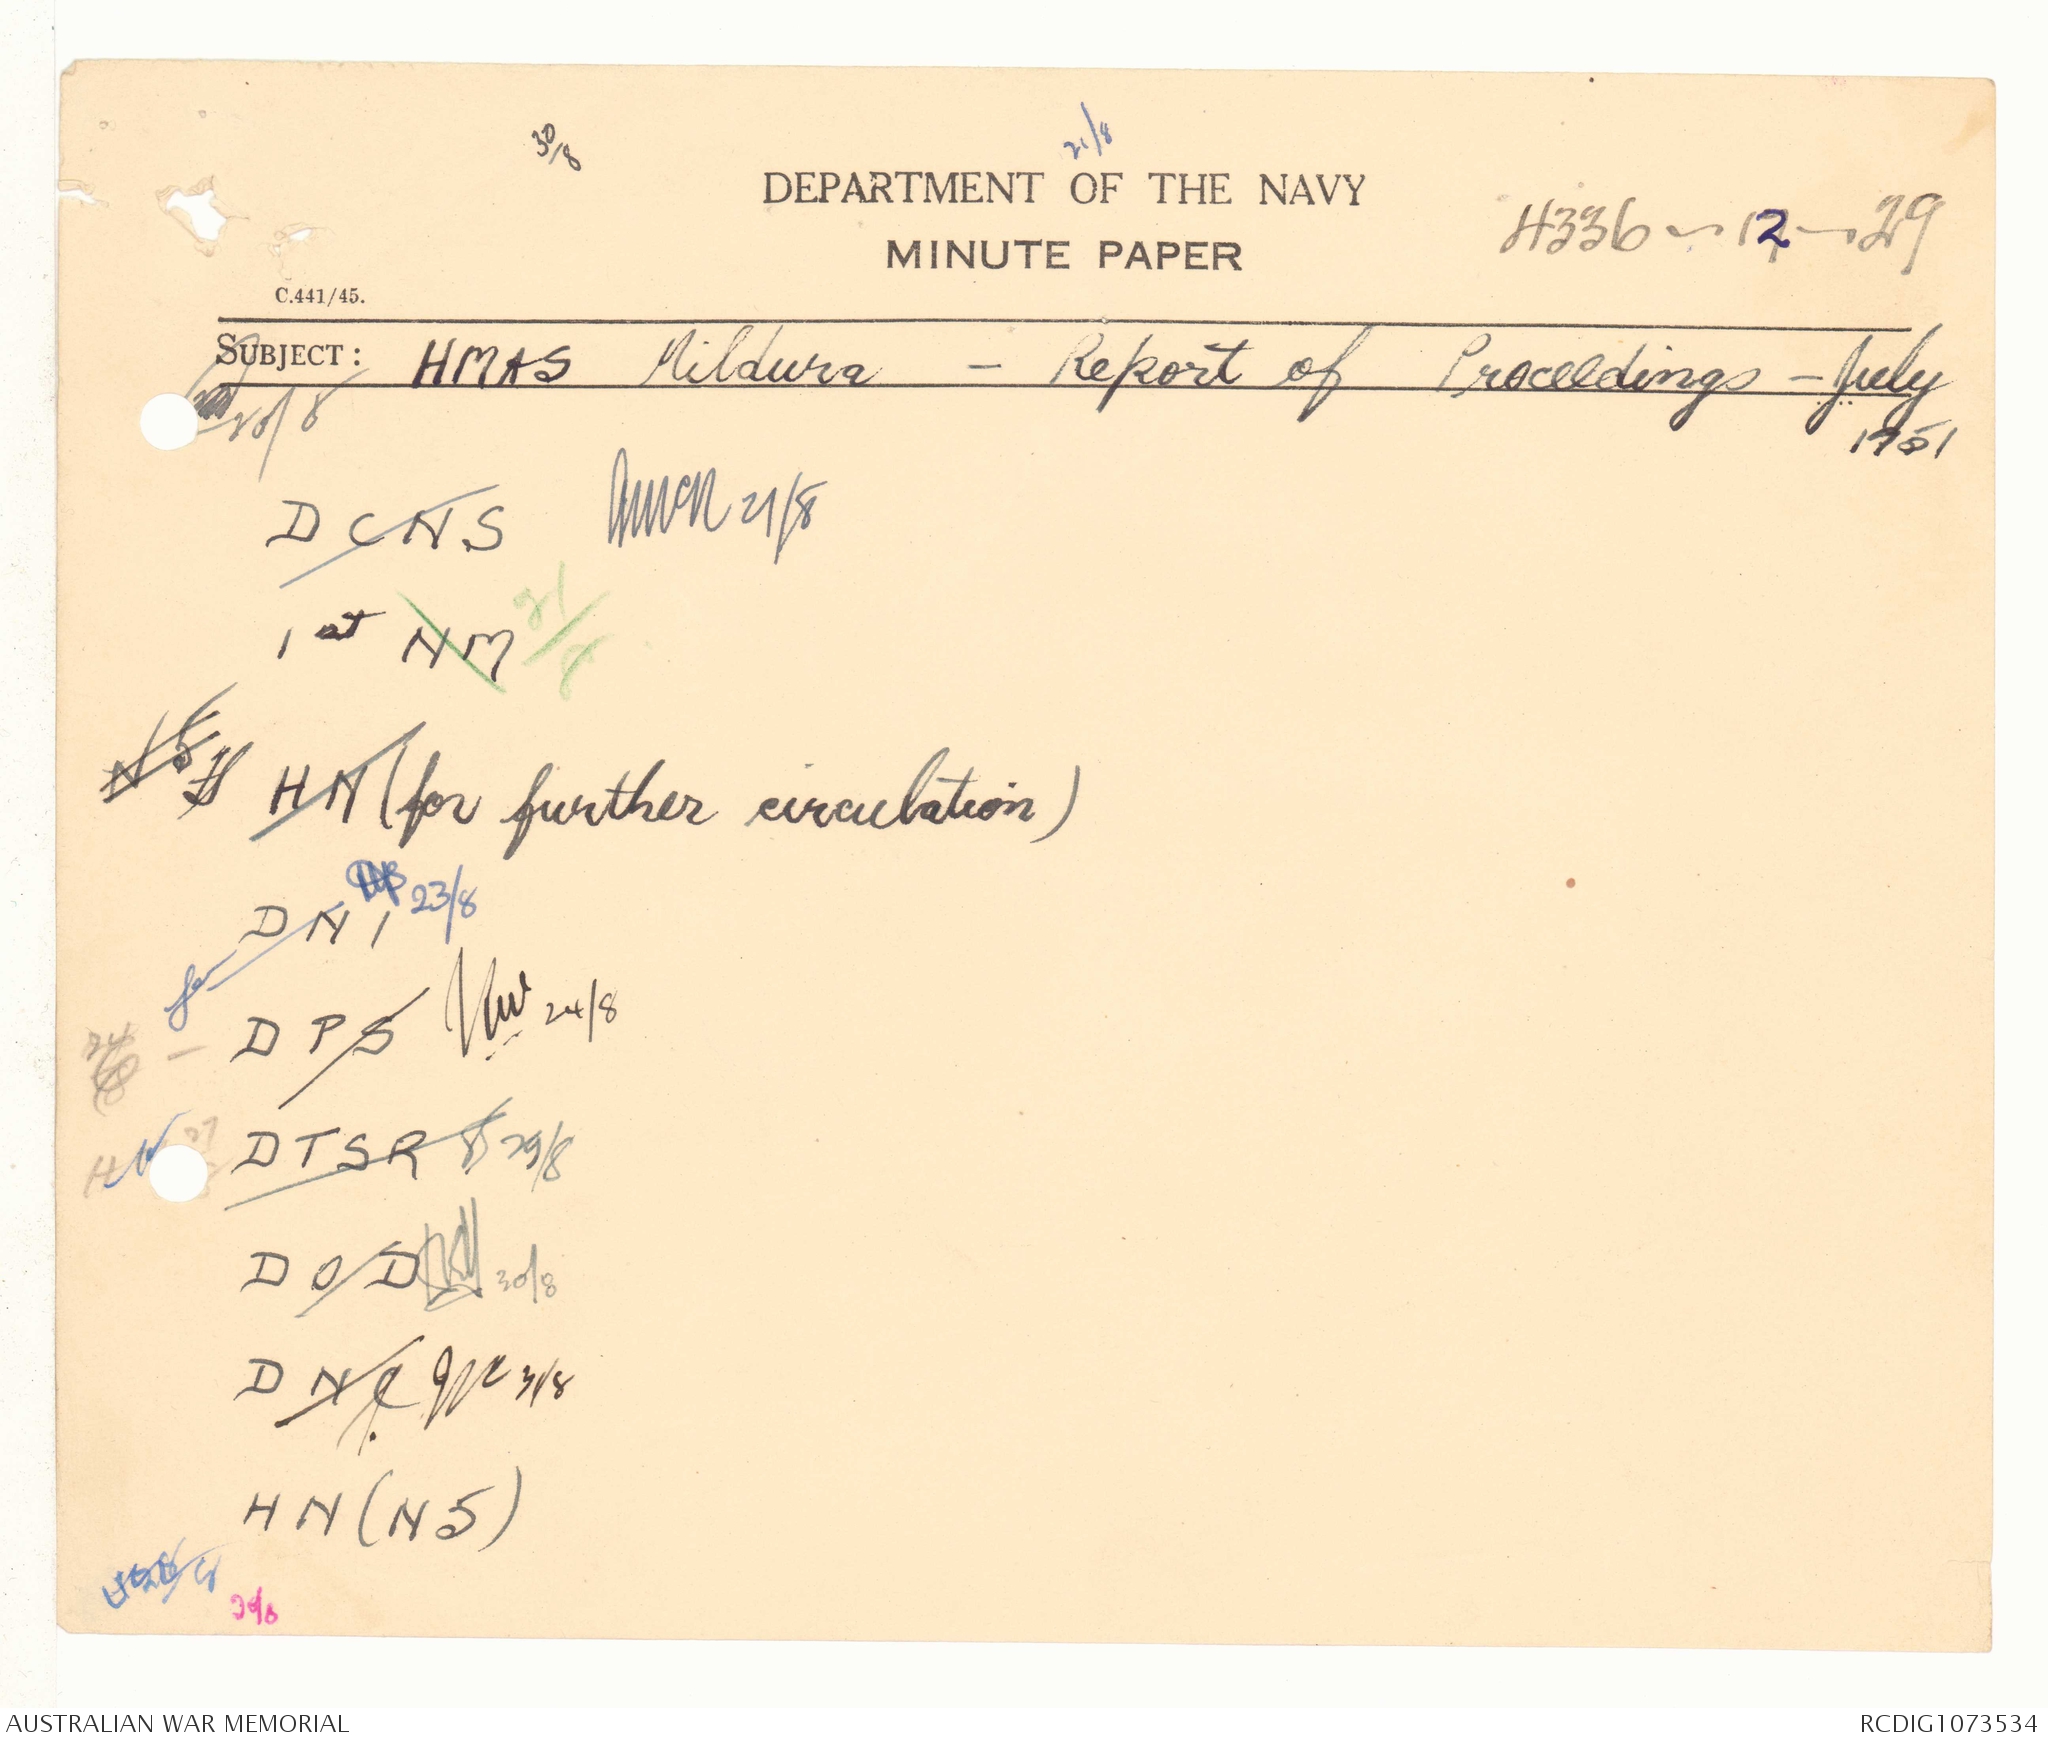 30/8
21/8
DEPARTMENT OF THE NAVY
MINUTE PAPER
H336-12-29
C.441/45.
SUBJECT: HMAS Mildura - Report of Proceedings - July
1951
20/8
D C N S 21/8
1st NM 21/8
N5
HN (for further circulation)
D N I 23/8
D P S 24/8
24
27
H
D T S R 29/8
D O D 30/8
D N C 31/8
HN (N5)
AUSTRALIAN WAR MEMORIAL
RCDIG1073534